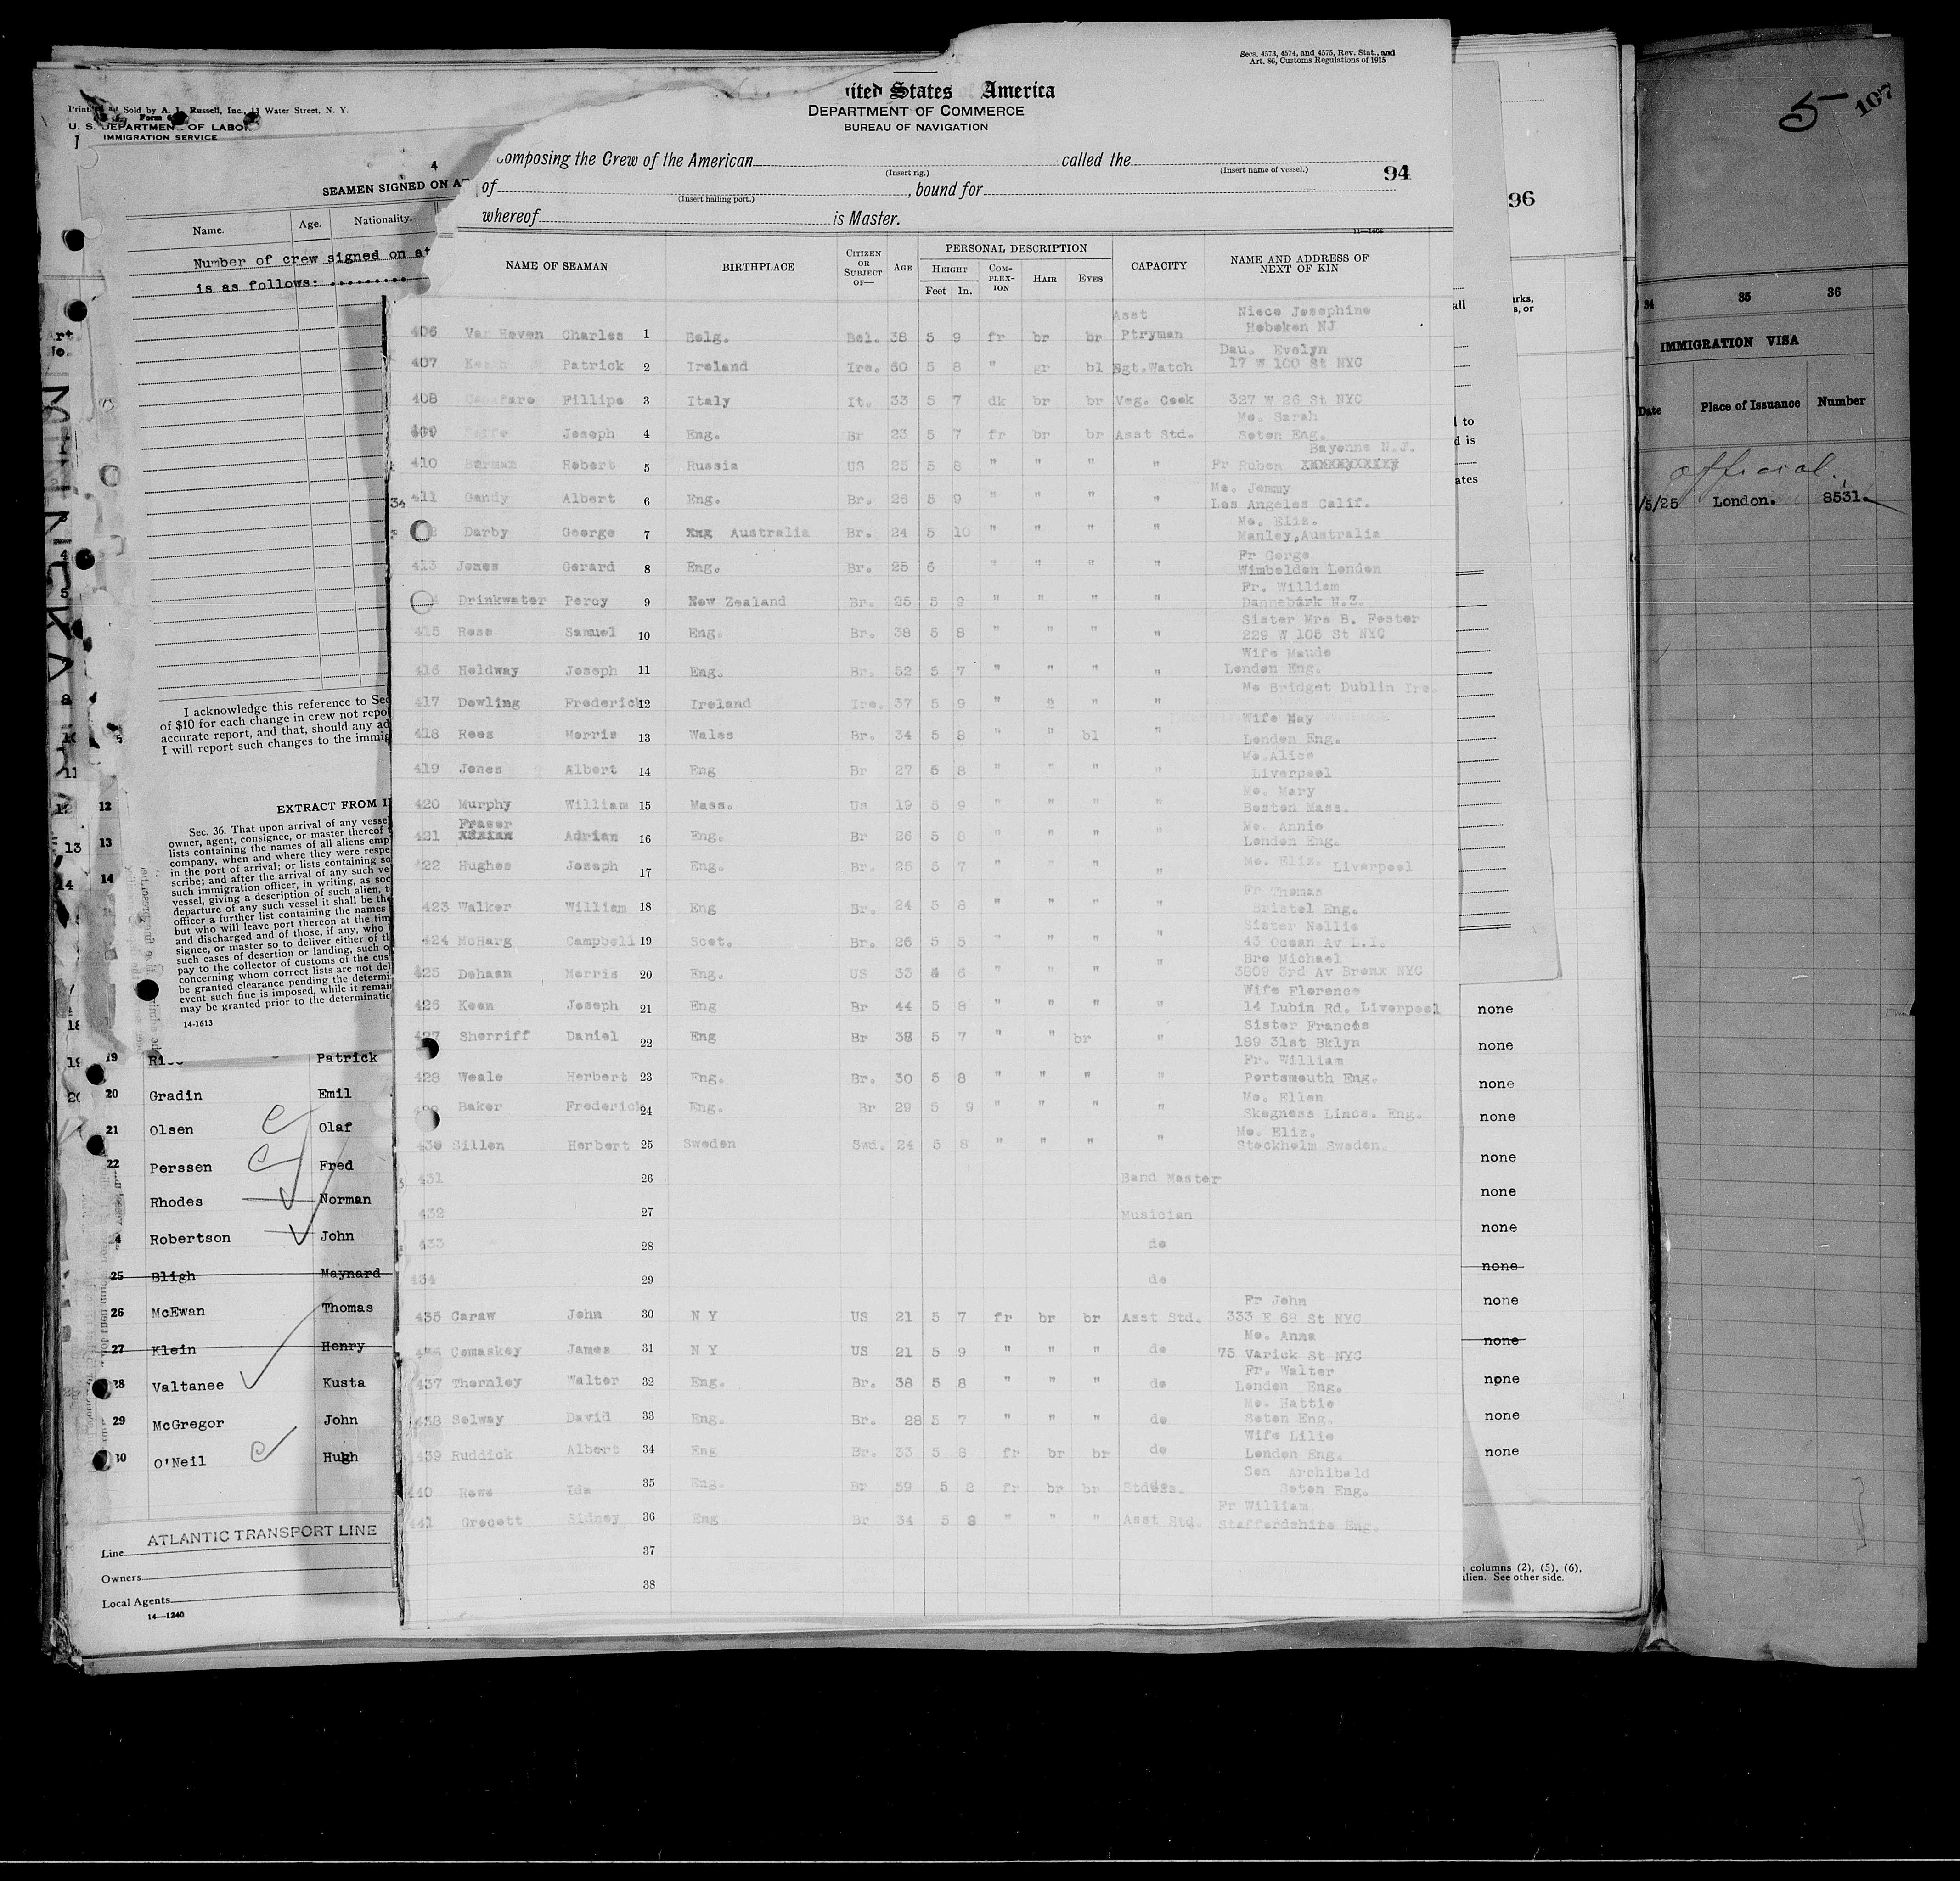 Secs. 4573, 4574, and 4575, Rev. Stat., and
Art. 86, Customs Regulations of 1915
ited States of America
DEPARTMENT OF COMMERCE
BUREAU OF NAVIGATION
composing the Crew of the American called the
(Insert rig.) (Insert name of vessel.)
94
of , bound for
(Insert hailing port.)
whereof is Master.
11—1406
NAME OF SEAMAN BIRTHPLACE CITIZEN OR SUBJECT OF— AGE PERSONAL DESCRIPTION CAPACITY NAME AND ADDRESS OF NEXT OF KIN
HEIGHT COMPLEXION HAIR EYES
Feet In.
406 Van Hoven Charles 1 Belg. Bel. 38 5 9 fr br br Asst Ptryman Niece Josephine Hoboken NJ
407 Patrick 2 Ireland Ire. 60 5 8 " gr bl Sgt.Watch Dau. Evelyn 17 W 100 St NYC
408 Fillipo 3 Italy It. 33 5 7 dk br br Veg. Cook 327 W 26 St NYC
409 Joseph 4 Eng. Br 23 5 7 fr br br Asst Std. Mo. Sarah Seton Eng.
410 Berman Robert 5 Russia US 25 5 8 " " " " Fr Ruben Bayonne N.J.
411 Gandy Albert 6 Eng. Br. 26 5 9 " " " " Mo. Jemmy Los Angeles Calif.
Darby George 7 Australia Br. 24 5 10 " " " " Mo. Eliz. Manley,Australia
413 Jones Gerard 8 Eng. Br. 25 6 " " " " Fr Gerge Wimbeldon London
Drinkwater Percy 9 New Zealand Br. 25 5 9 " " " " Fr. William Dannebark N.Z.
415 Rose Samuel 10 Eng. Br. 38 5 8 " " " " Sister Mrs B. Foster 229 W 105 St NYC
416 Holdway Joseph 11 Eng. Br. 52 5 7 " " " " Wife Maude London Eng.
417 Dowling Frederick 12 Ireland Ire. 37 5 9 " " " Mo Bridget Dublin Ire.
418 Rees Morris 13 Wales Br. 34 5 8 " " bl " Wife May London Eng.
419 Jones Albert 14 Eng Br 27 5 8 " " " " Mo.Alice Liverpool
420 Murphy William 15 Mass. Us 19 5 9 " " " " Mo. Mary Boston Mass.
421 Fraser Adrian 16 Eng. Br 26 5 8 " " " " Mo. Annie London Eng.
422 Hughes Joseph 17 Eng. Br. 25 5 7 " " " " Mo. Eliz. Liverpool
423 Walker William 18 Eng Br. 24 5 8 " " " " Fr Thomas Bristol Eng.
424 McHarg Campbell 19 Scot. Br. 26 5 5 " " " " Sister Nellie 43 Ocean Av L.I.
425 Dehaan Morris 20 Eng. US 33 5 6 " " " " Bro Michael 3809 3rd Av Bronx NYC
426 Keen Joseph 21 Eng Br 44 5 8 " " " " Wife Florence 14 Lubin Rd. Liverpool
427 Sherriff Daniel 22 Eng Br 38 5 7 " " br " Sister Francis 189 31st Bklyn
428 Weale Herbert 23 Eng. Br. 30 5 8 " " " " Fr. William Portsmouth Eng.
Baker Frederick 24 Eng. Br 29 5 9 " " " " Mo. Ellen Skegness Lincs. Eng.
430 Sillen Herbert 25 Sweden Swd. 24 5 8 " " " " Mo. Eliz. Stockholm Sweden.
431 26 Band Master
432 27 Musician
433 28 do
434 29 do
435 Caraw John 30 N Y US 21 5 7 fr br br Asst Std. Fr John 333 E 68 St NYC
436 Comaskey James 31 N Y US 21 5 9 " " " do Mo. Anna 75 Varick St NYC
437 Thornley Walter 32 Eng. Br. 38 5 8 " " " do Fr. Walter London Eng.
438 Selway David 33 Eng. Br. 28 5 7 " " " do Mo. Hattie Seton Eng.
439 Ruddick Albert 34 Eng Br. 33 5 8 fr br br do Wife Lilie London Eng.
440 Rowe Ida 35 Eng. Br 59 5 8 fr br br Son Archibald Seton Eng.
441 Grocott Sidney 36 Eng Br 34 5 8 " " " Asst Std. Fr William Staffordshire Eng.
37
38
Sold by A. L. Russell, Inc., 11 Water Street, N. Y.
U. S. DEPARTMENT OF LABOR
IMMIGRATION SERVICE
4
SEAMEN SIGNED ON
Name. Age. Nationality.
Number of crew signed on at
is as follows:
I acknowledge this reference to Sec
of $10 for each change in crew not repo
accurate report, and that, should any ad
I will report such changes to the immig
EXTRACT FROM I
Sec. 36. That upon arrival of any vesse
owner, agent, consignee, or master thereof
lists containing the names of all aliens emp
company, when and where they were respe
in the port of arrival; or lists containing so
scribe; and after the arrival of any such ve
such immigration officer, in writing, as soo
vessel, giving a description of such alien, t
departure of any such vessel it shall be the
officer a further list containing the names
but who will leave port thereon at the tim
and discharged and of those, if any, who
signee, or master so to deliver either of th
such cases of desertion or landing, such o
pay to the collector of customs of the cus
concerning whom correct lists are not del
be granted clearance pending the determi
event such fine is imposed, while it remai
may be granted prior to the determinatio
14-1613
19 Patrick
20 Gradin Emil
21 Olsen Olaf
22 Perssen Fred
Rhodes Norman
4 Robertson John
25 Bligh Maynard
26 McEwan Thomas
27 Klein Henry
28 Valtanee Kusta
29 McGregor John
30 O'Neil Hugh
ATLANTIC TRANSPORT LINE
Line
Owners
Local Agents
14—1240
96
none
none
none
none
none
none
none
none
none
none
none
none
none
columns (2), (5), (6),
alien. See other side.
5 107
34 35 36
IMMIGRATION VISA
Date Place of Issuance Number
official
/5/25 London. 8531.